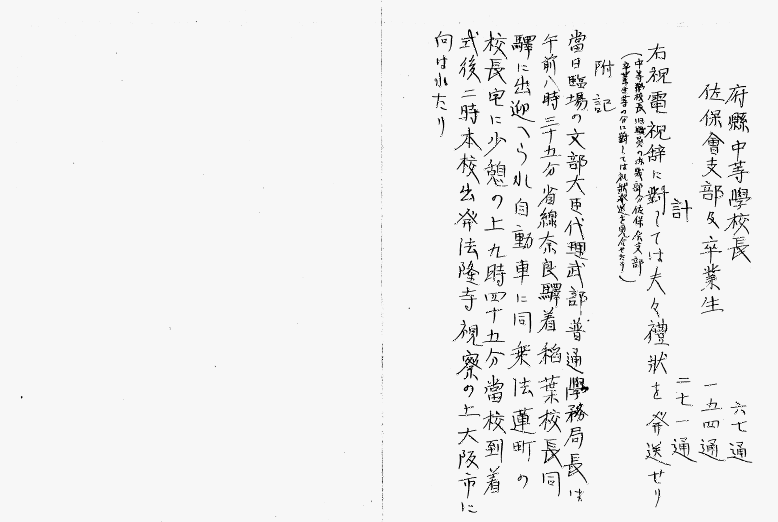 府縣中等學校長 六七通
佐保會支部及卒業生 一五四通
計 二七一通
右祝電祝辞に對しては夫々禮狀を発送せり
(中等學校長旧職員の内 部分佐保会支部
卒業生等の分に對しては礼狀発送を見合せたり)
附記
當日臨場の文部大臣代理武部普通學務局長は
午前八時三十五分省線奈良驛着稻葉校長同
驛に出迎へられ自動車に同乗法蓮町の
校長宅に少憩の上九時四十五分當校到着
式後二時本校出発法隆寺視察の上大阪市に
向はれたり